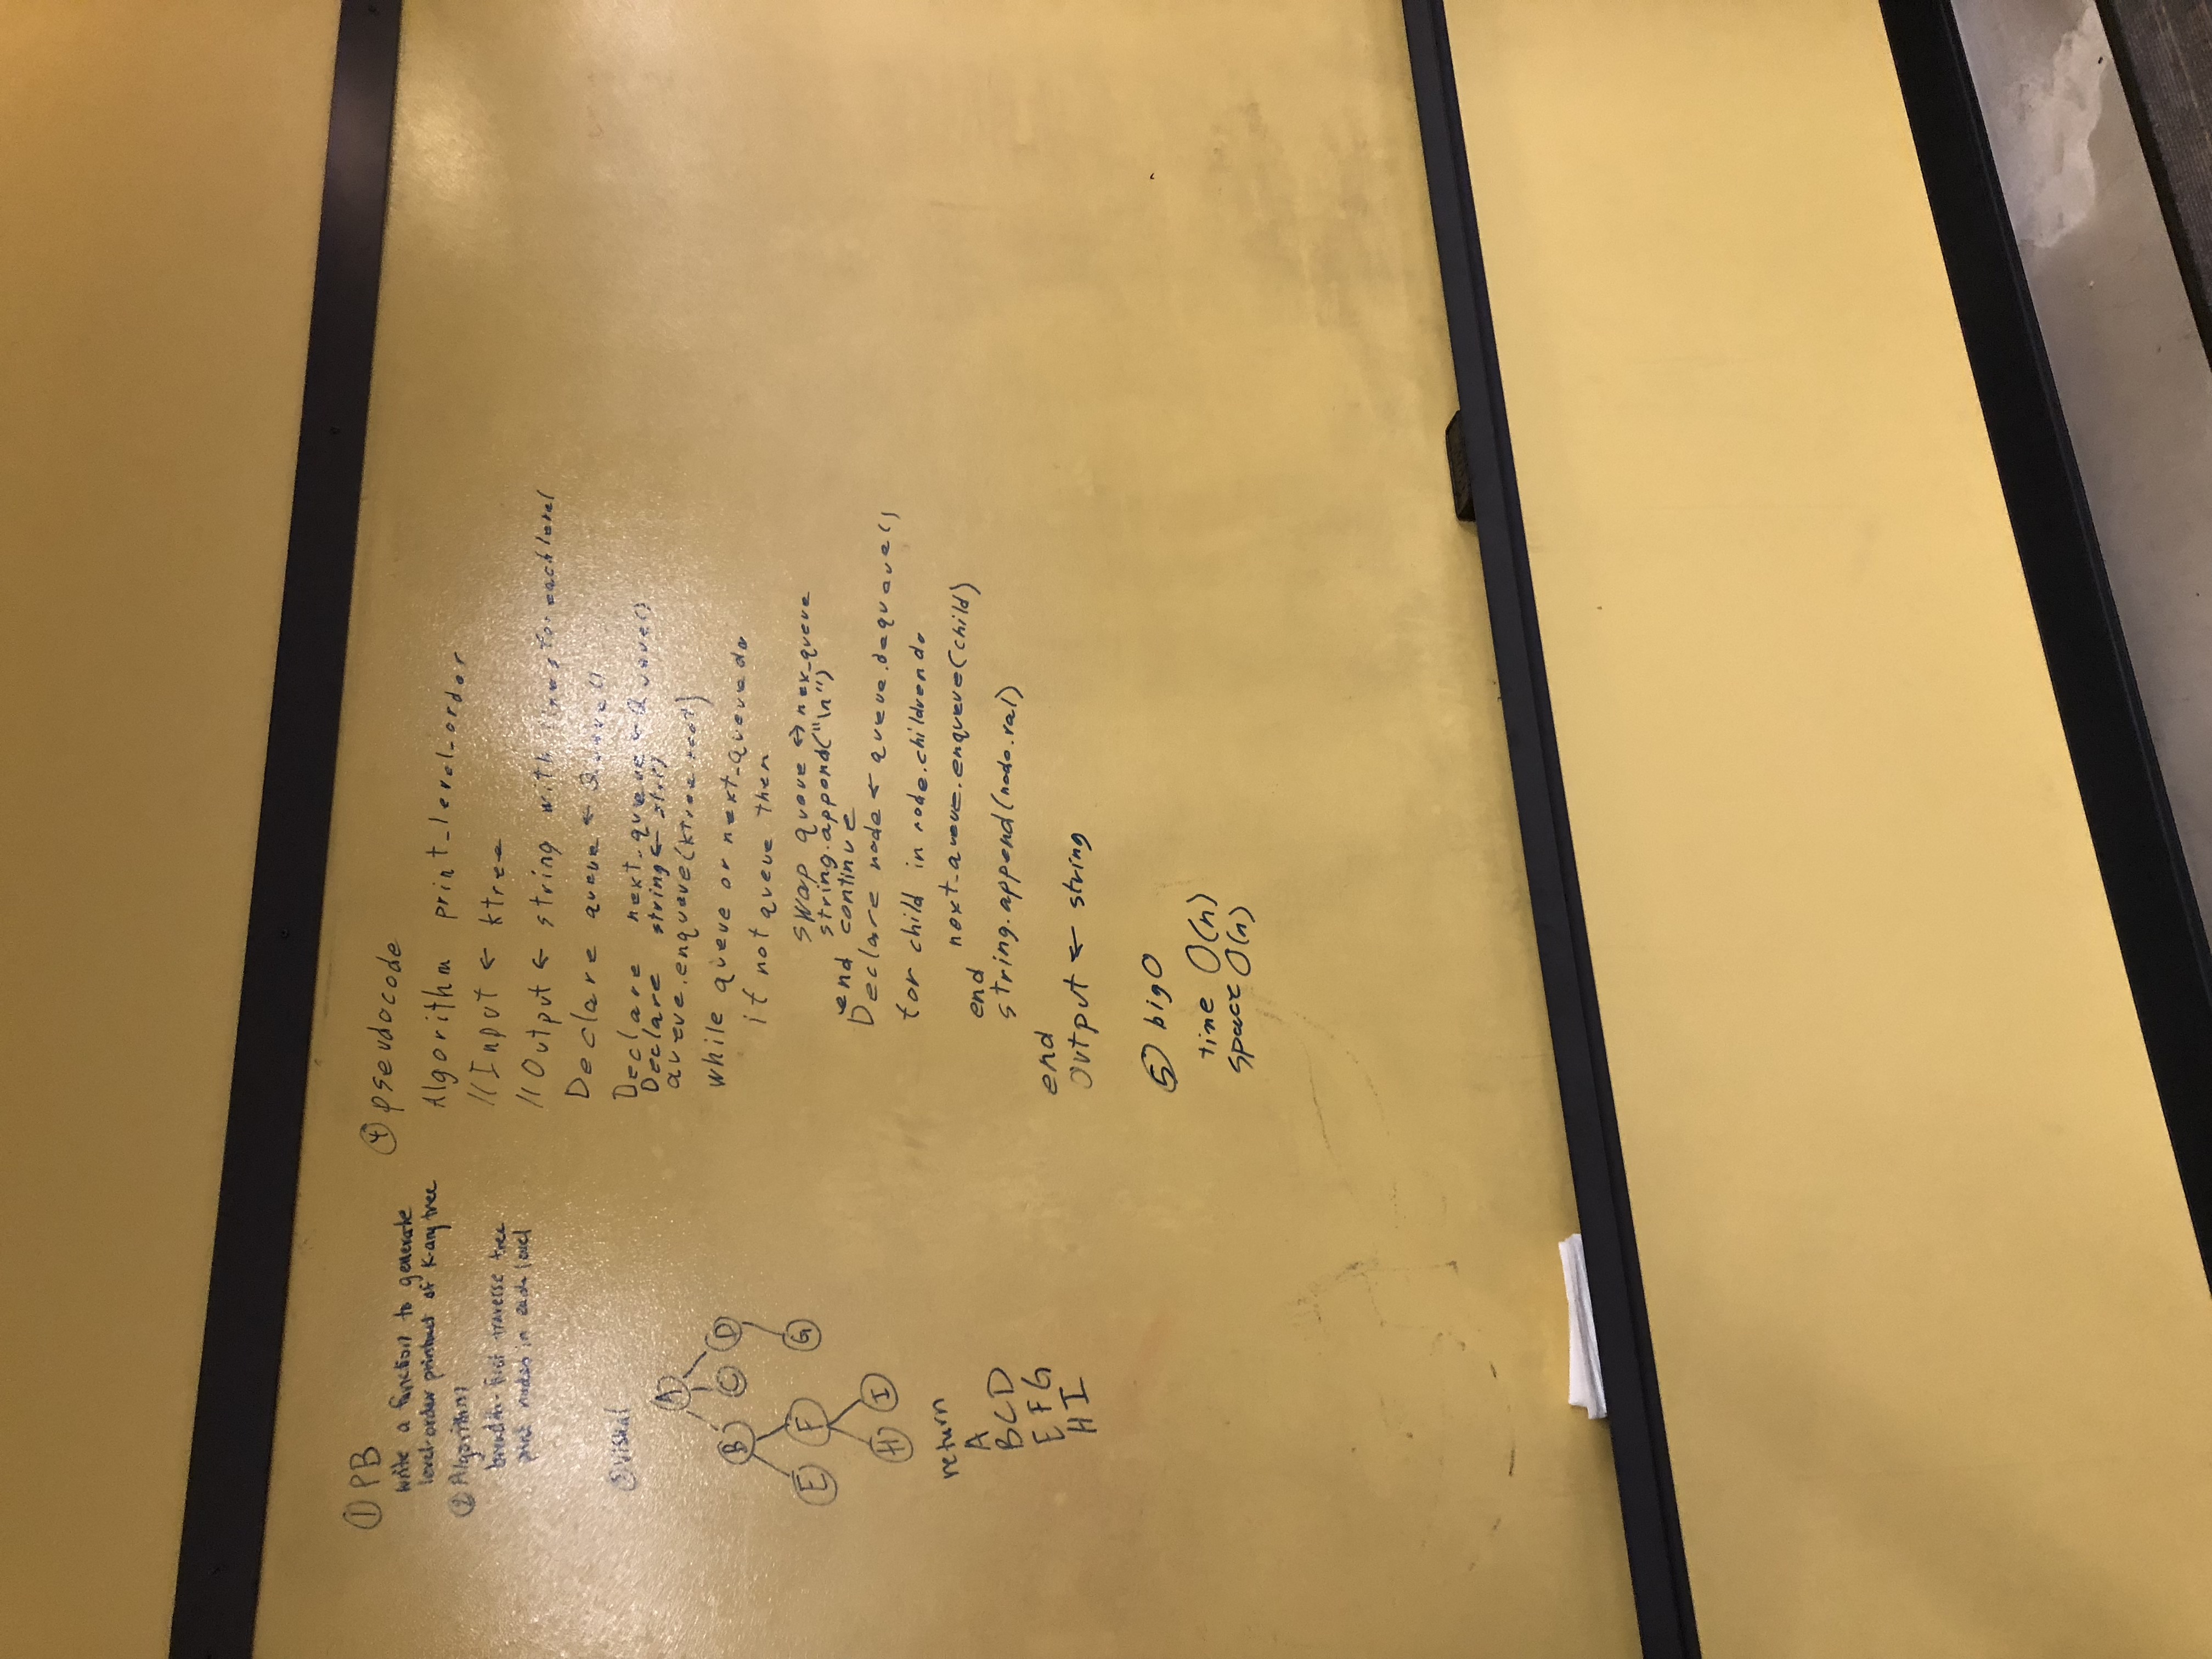 ① PB
write a function to generate
level-order printout of K-ary tree
② Algorithm
breadth-first traverse tree
print nodes in each level
③ visual
A
B C D
E F G
H I
return
A
BCD
EFG
HI
④ pseudocode
Algorithm print_level_order
// Input ← ktree
// Output ← string with lines for each level
Declare queue ← Queue()
Declare next_queue ← Queue()
Declare string ← str()
queue.enqueue(ktree.root)
while queue or next_queue do
if not queue then
swap queue ↔ nex_queue
string.append("\n")
end continue
Declare node ← queue.dequeue()
for child in node.children do
next_queue.enqueue(child)
end
string.append(node.val)
end
Output ← string
⑤ big O
time O(n)
space O(n)